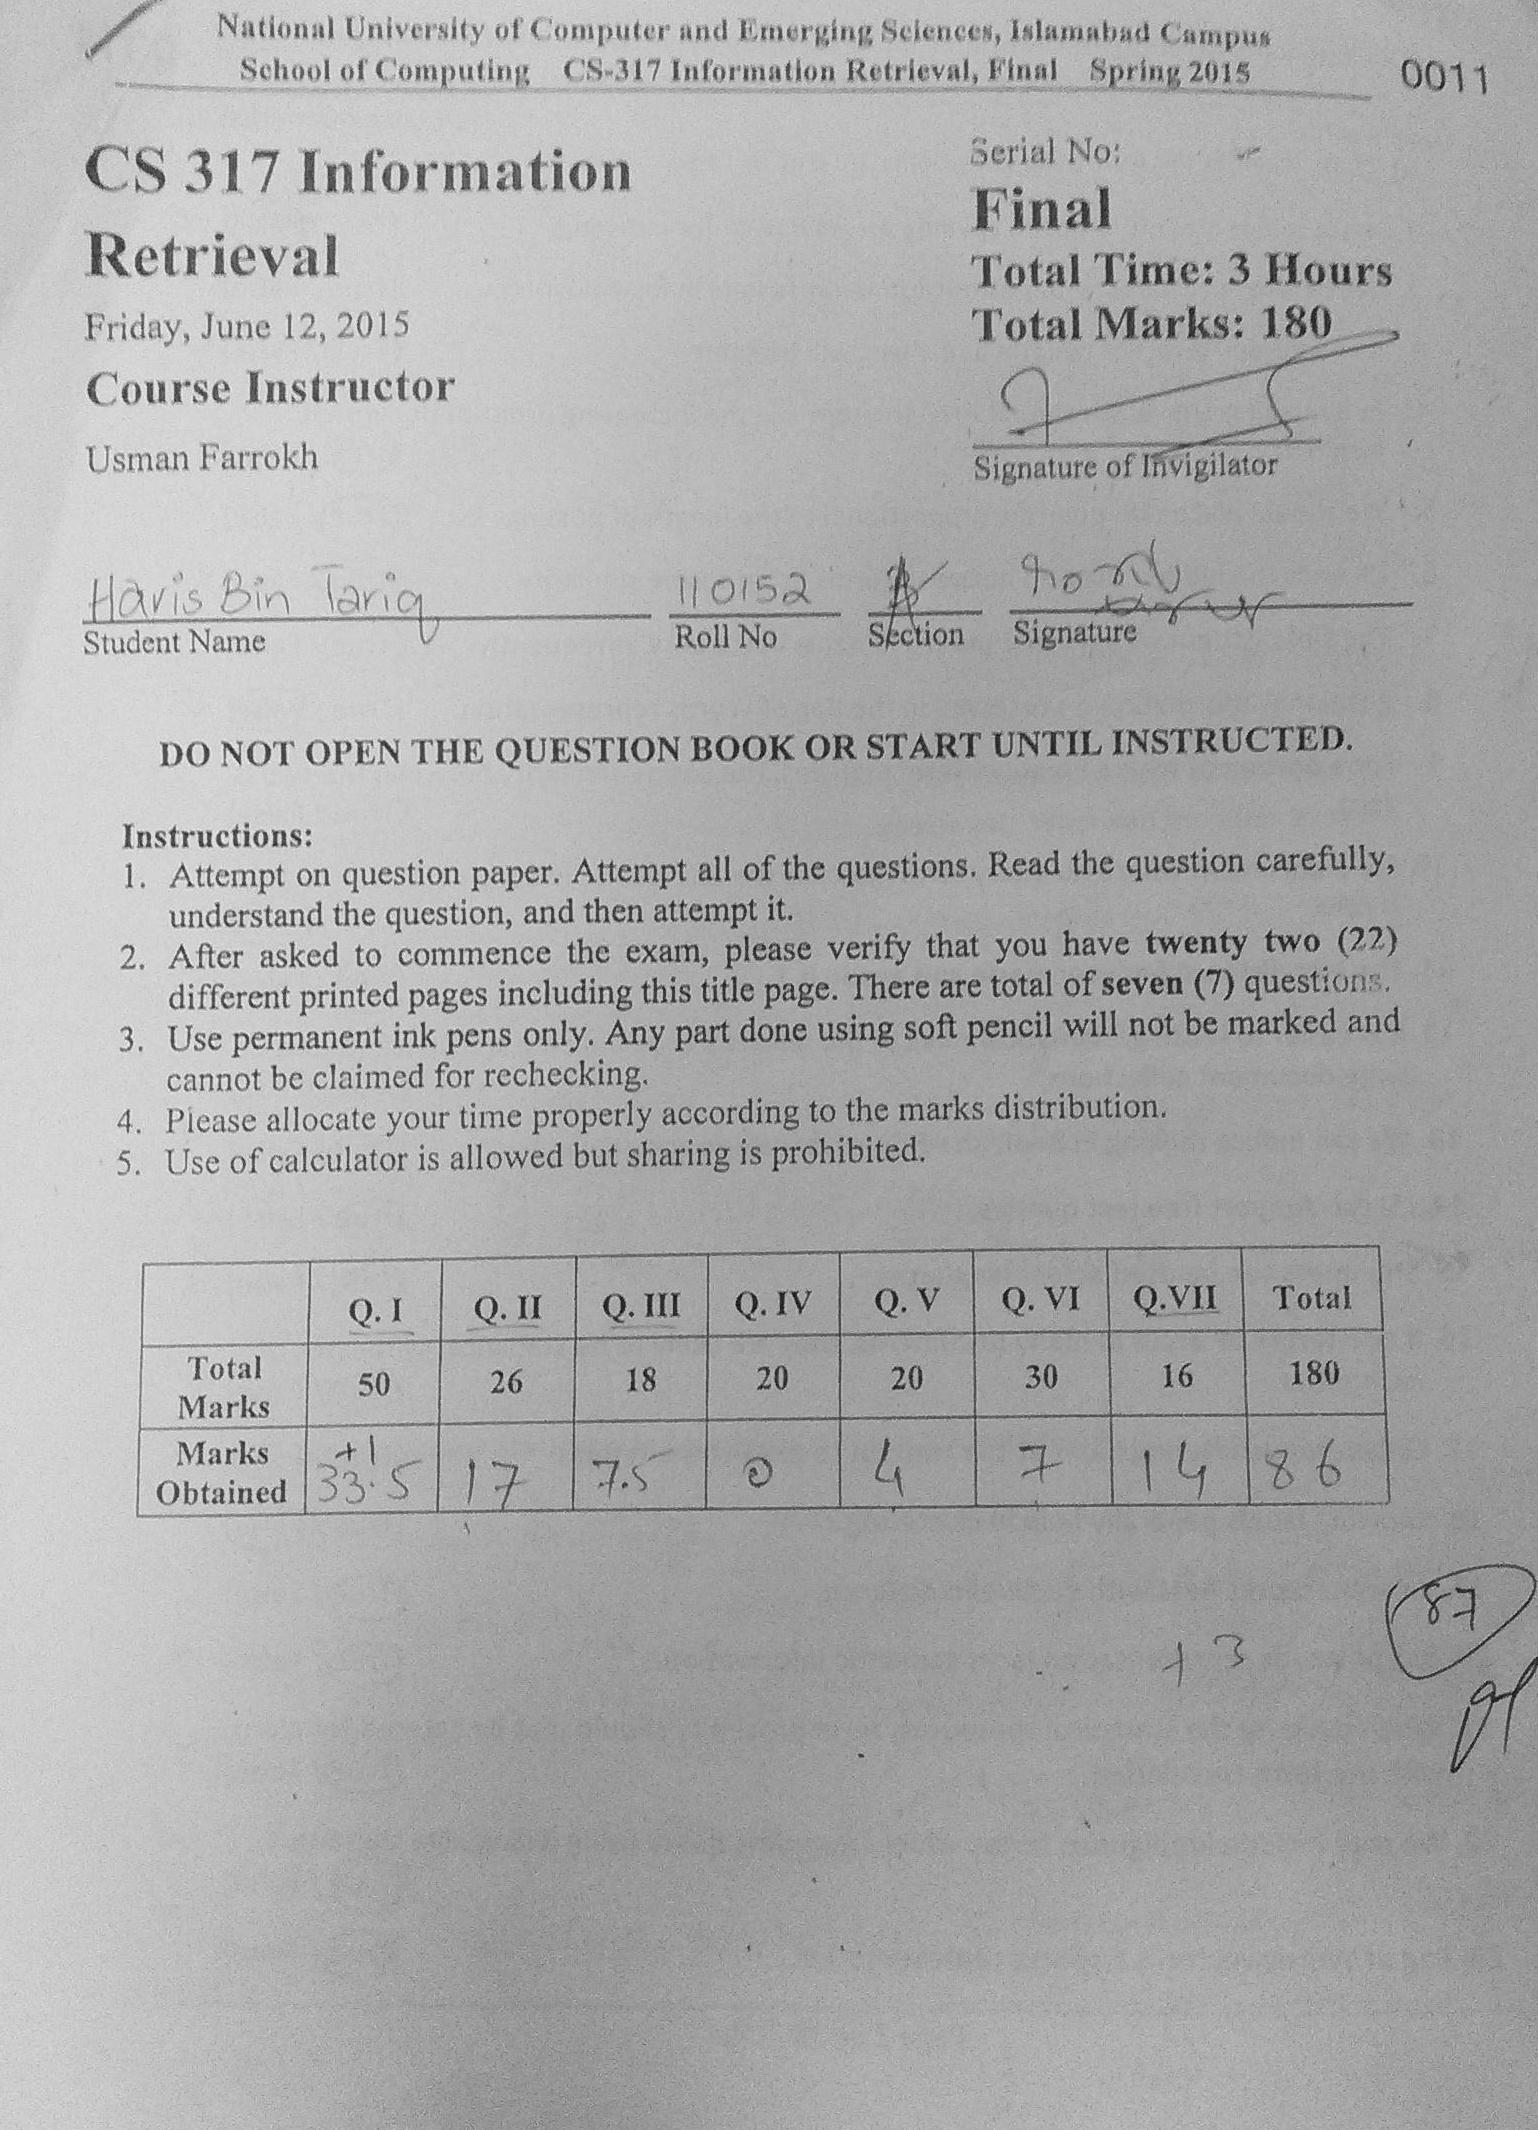 National University of Computer and Emerging Sciences, Islamabad Campus
School of Computing CS-317 Information Retrieval, Final Spring 2015
0011
CS 317 Information
Retrieval
Friday, June 12, 2015
Course Instructor
Usman Farrokh
Serial No:
Final
Total Time: 3 Hours
Total Marks: 180
Signature of Invigilator
Haris Bin Tariq 110152
Student Name Roll No Section Signature
DO NOT OPEN THE QUESTION BOOK OR START UNTIL INSTRUCTED.
Instructions:
1. Attempt on question paper. Attempt all of the questions. Read the question carefully,
understand the question, and then attempt it.
2. After asked to commence the exam, please verify that you have twenty two (22)
different printed pages including this title page. There are total of seven (7) questions.
3. Use permanent ink pens only. Any part done using soft pencil will not be marked and
cannot be claimed for rechecking.
4. Please allocate your time properly according to the marks distribution.
5. Use of calculator is allowed but sharing is prohibited.
Q. I Q. II Q. III Q. IV Q. V Q. VI Q.VII Total
Total Marks 50 26 18 20 20 30 16 180
Marks Obtained +1 33.5 17 7.5 0 4 7 14 86
87
+3